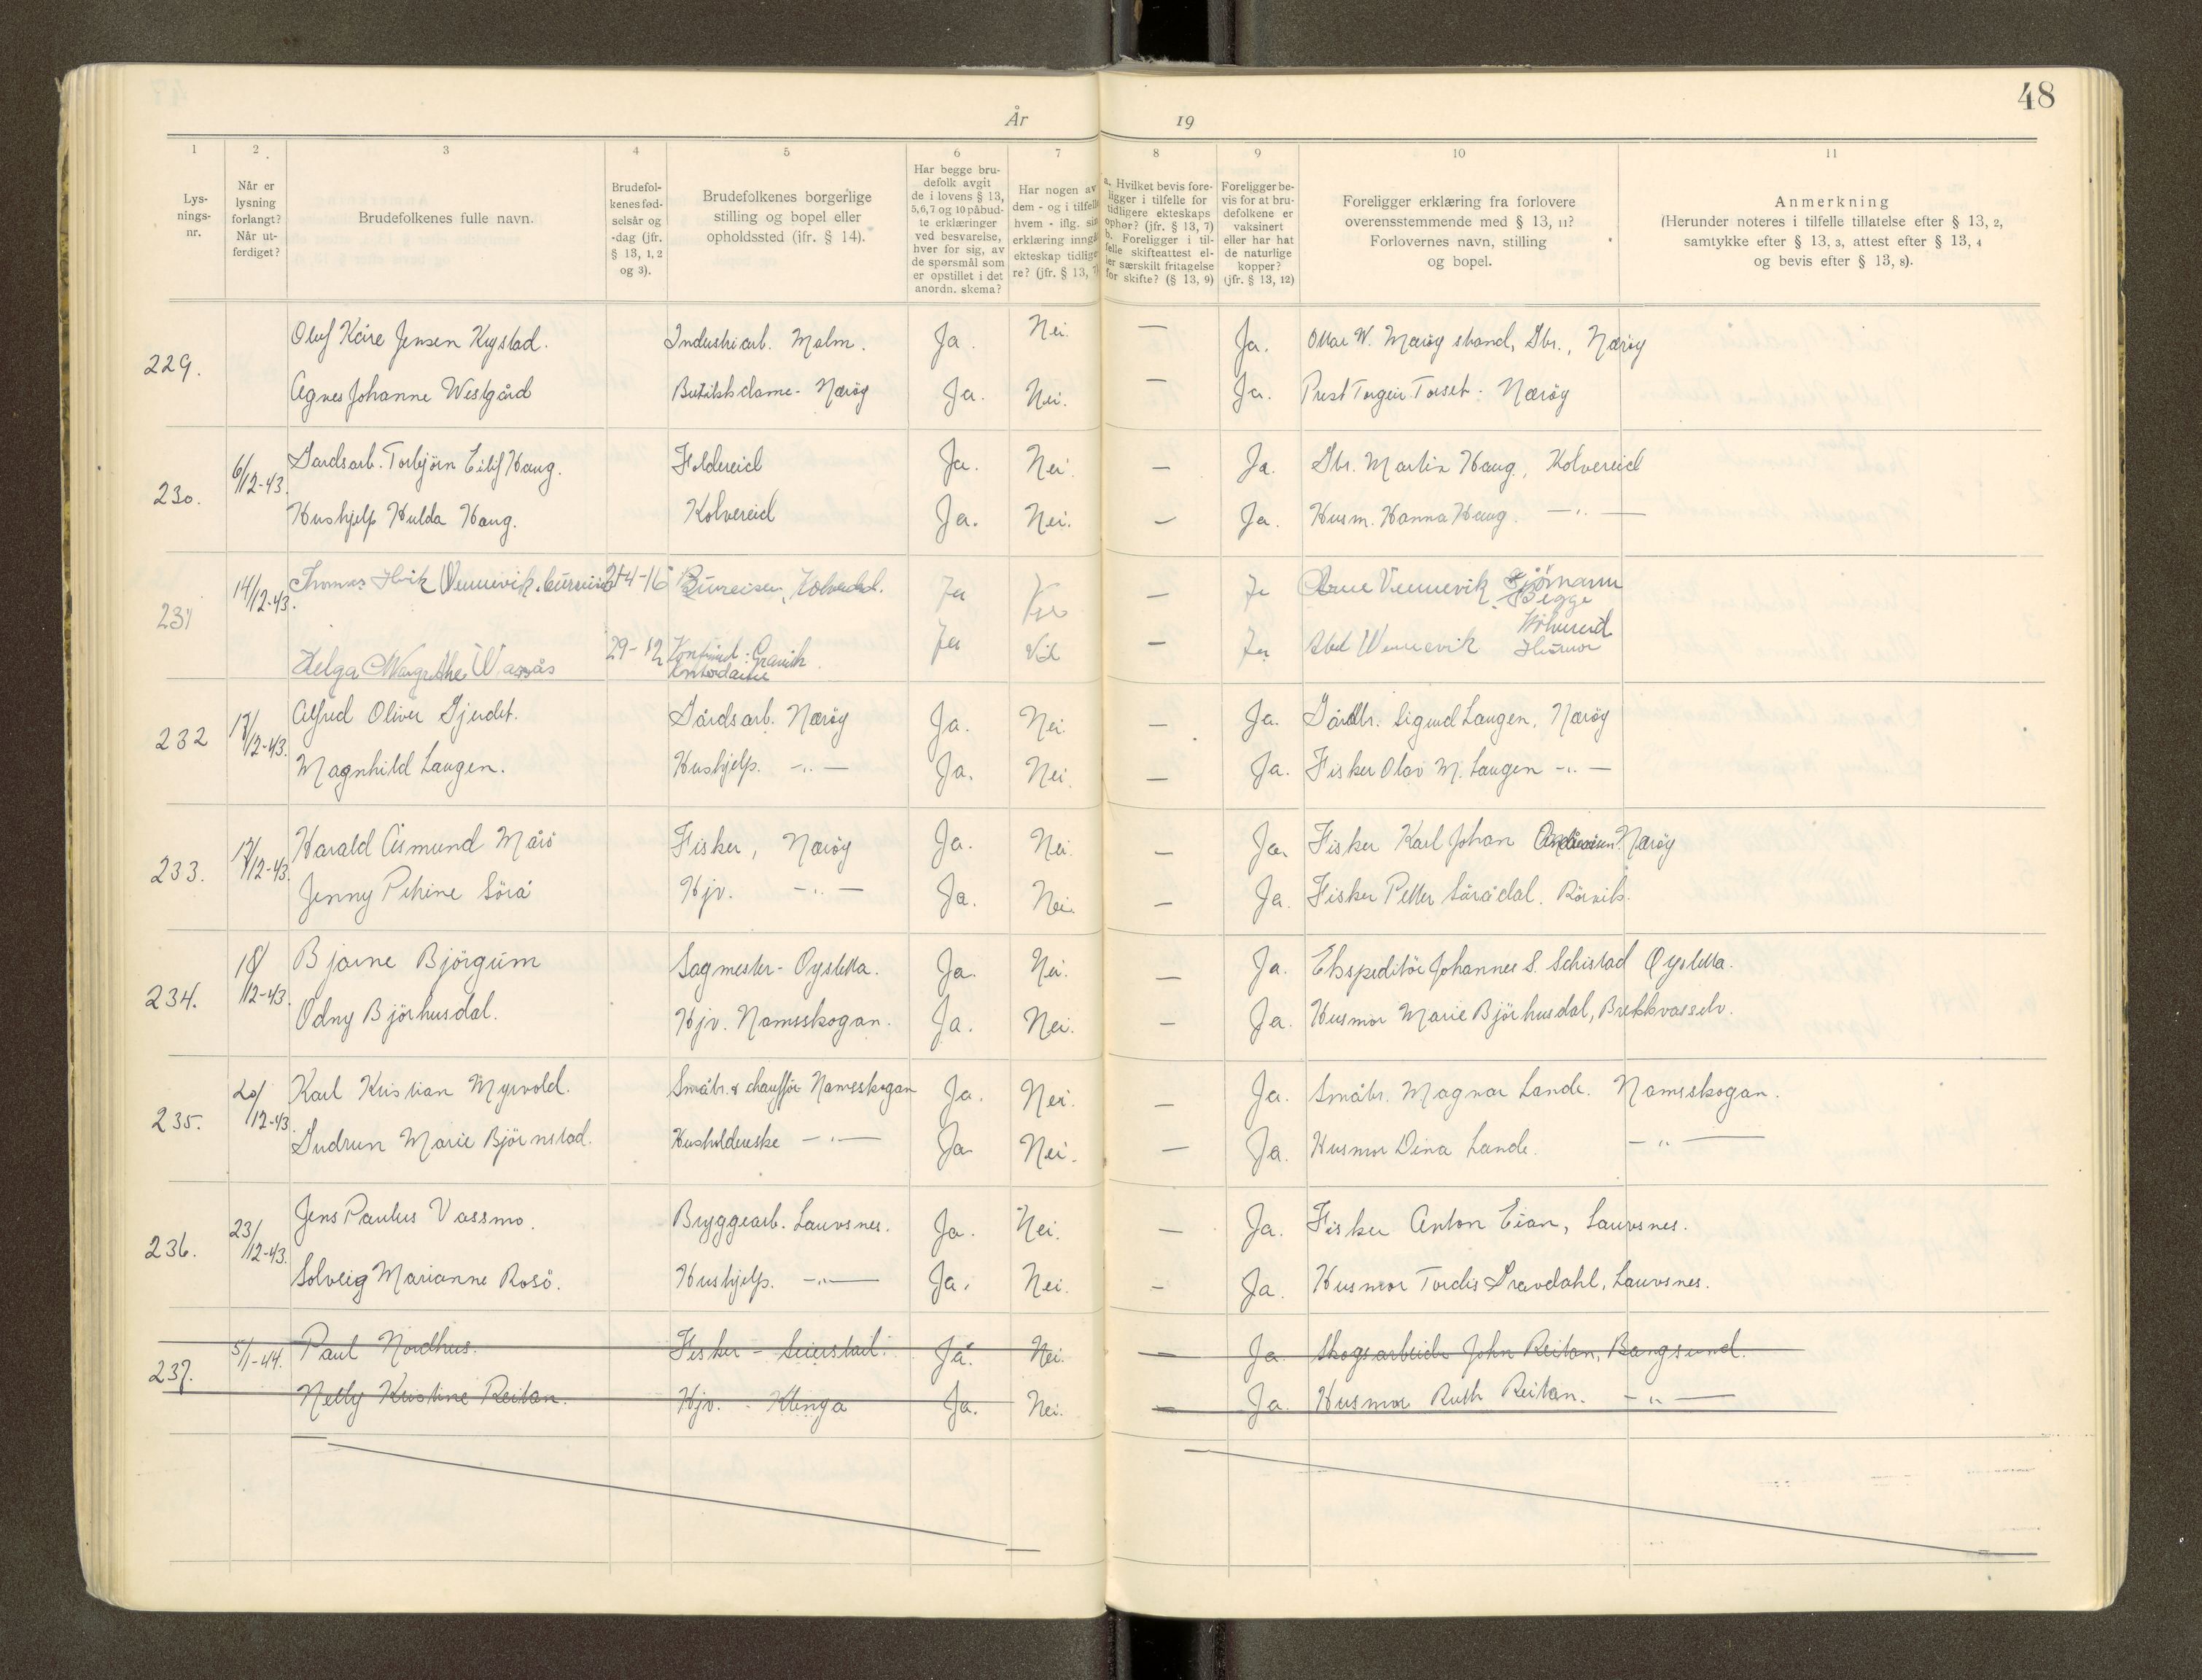 48
År 19
1 2 3 4 5 6 7 8 9 10 11
Lys-
nings-
nr.
Når er
lysning
forlangt?
Når ut-
ferdiget?
Brudefolkenes fulle navn.
Brudefol-
kenes fød-
selsår og
-dag (jfr.
§ 13, 1, 2
og 3).
Brudefolkenes borgerlige
stilling og bopel eller
opholdssted (jfr. § 14).
Har begge bru-
defolk avgit
de i lovens § 13,
5,6,7 og 10 påbud-
te erklæringer
ved besvarelse,
hver for sig, av
de spørsmål som
er opstillet i det
anordn. skema?
Har nogen av
dem - og i tilfelle
hvem - iflg. sin
erklæring inngå
ekteskap tidlige
re? (jfr. § 13, 7)
a. Hvilket bevis fore-
ligger i tilfelle for
tidligere ekteskaps
ophør? (jfr. § 13, 7)
b. Foreligger i til-
felle skifteattest el-
ler særskilt fritagelse
for skifte? (§ 13, 9)
Foreligger be-
vis for at bru-
defolkene er
vaksinert
eller har hat
de naturlige
kopper?
(jfr. § 13, 12)
Foreligger erklæring fra forlovere
overensstemmende med § 13, 11?
Forlovernes navn, stilling
og bopel.
Anmerkning
(Herunder noteres i tilfelle tillatelse efter § 13, 2,
samtykke efter § 13, 3, attest efter § 13, 4
og bevis efter § 13, 8).
229.
Oluf Kåre Jensen Kystad. Industriarb. Malm. Ja. Nei. — Ja. Ottar W. Marøystrand, Gbr., Nærøy
Agnes Johanne Westgård Butikkdame - Nærøy Ja. Nei. — Ja. Prest Torgeir Torset - Nærøy
230. 6/12-43.
Gardsarb. Torbjörn Eilif Haug. Foldereid Ja. Nei. — Ja. Gbr. Martin Haug, Kolvereid
Hushjelp Hulda Haug. Kolvereid Ja. Nei. — Ja. Husm. Hanna Haug. —"—
231 14/12-43.
Thomas Vennevik. 4-16 Bureiser, Ja — Ja Vennevik Sjömann
Begge
Helga Margrethe 29-12 Gravik Ja — Ja Vennevik Husmor
232 17/12-43.
Alfred Oliver Gjerdet. Gårdsarb. Nærøy Ja. Nei. — Ja. Gårdbr. Sigurd Laugen, Nærøy
Magnhild Laugen. Hushjelp. —"— Ja. Nei. — Ja. Fisker Olav M. Laugen —"—
233. 17/12-43.
Harald Åsmund Marö Fisker, Nærøy Ja. Nei. — Ja. Fisker Karl Johan Nærøy
Jenny Petrine Sörå Hjv. —"— Ja. Nei. — Ja. Fisker Petter Söraadal. Rörvik.
234. 18/12-43.
Bjarne Björgum Sagmester - Oysletta. Ja. Nei. — Ja. Ekspeditör Johannes S. Schistad Oysletta.
Odny Björhusdal. Hjv. Namsskogan. Ja. Nei. — Ja. Husmor Marie Björhusdal, Brekkvasselv.
235. 20/12-43.
Karl Kristian Myrvold. Småbr. & chauffør Namsskogan Ja. Nei. — Ja. Småbr. Magnar Lande. Namsskogan.
Gudrun Marie Björnstad. Husholderske —"— Ja. Nei. — Ja. Husmor Dina Lande. —"—
236. 23/12-43.
Jens Paulus Vassmo. Bryggearb. Lauvsnes. Ja. Nei. — Ja. Fisker Anton Eian, Lauvsnes.
Solveig Marianne Rosö. Hushjelp. —"— Ja. Nei. — Ja. Husmor Tordis Gravdahl, Lauvsnes.
237. 5/1-44.
Paul Nordhus. Fisker - Seierstad. Ja. Nei. — Ja. Skogsarbeider John Reitan, Bangsund.
Nelly Kristine Reitan. Hjv. - Klinga Ja. Nei. — Ja. Husmor Ruth Reitan. —"—